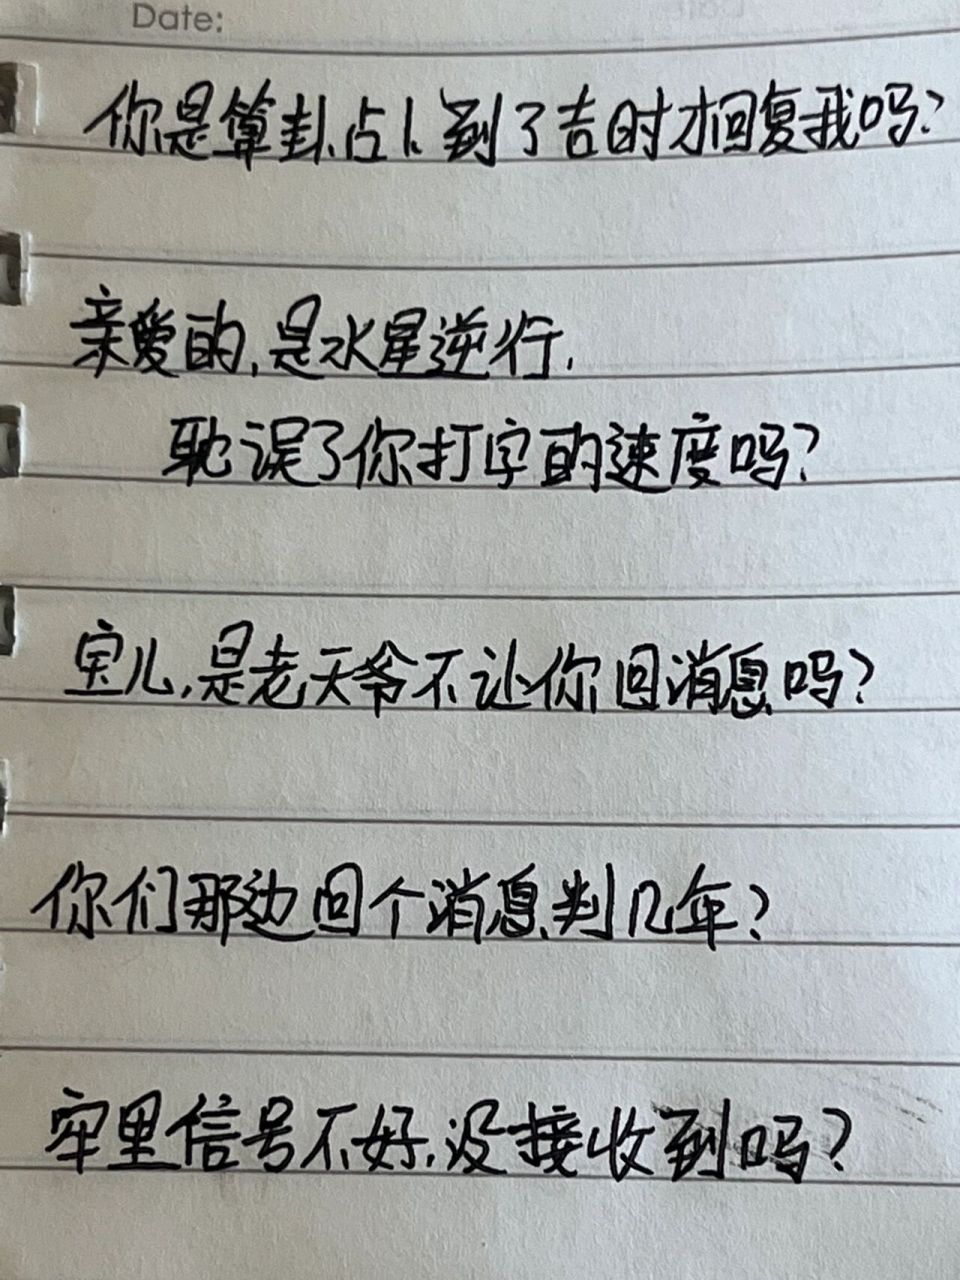 Date:
你是算卦、占卜、到了吉时才回复我吗?
亲爱的,是水星逆行,
耽误了你打字的速度吗?
宝儿,是老天爷不让你回消息吗?
你们那边回个消息判几年?
牢里信号不好,没接收到吗?